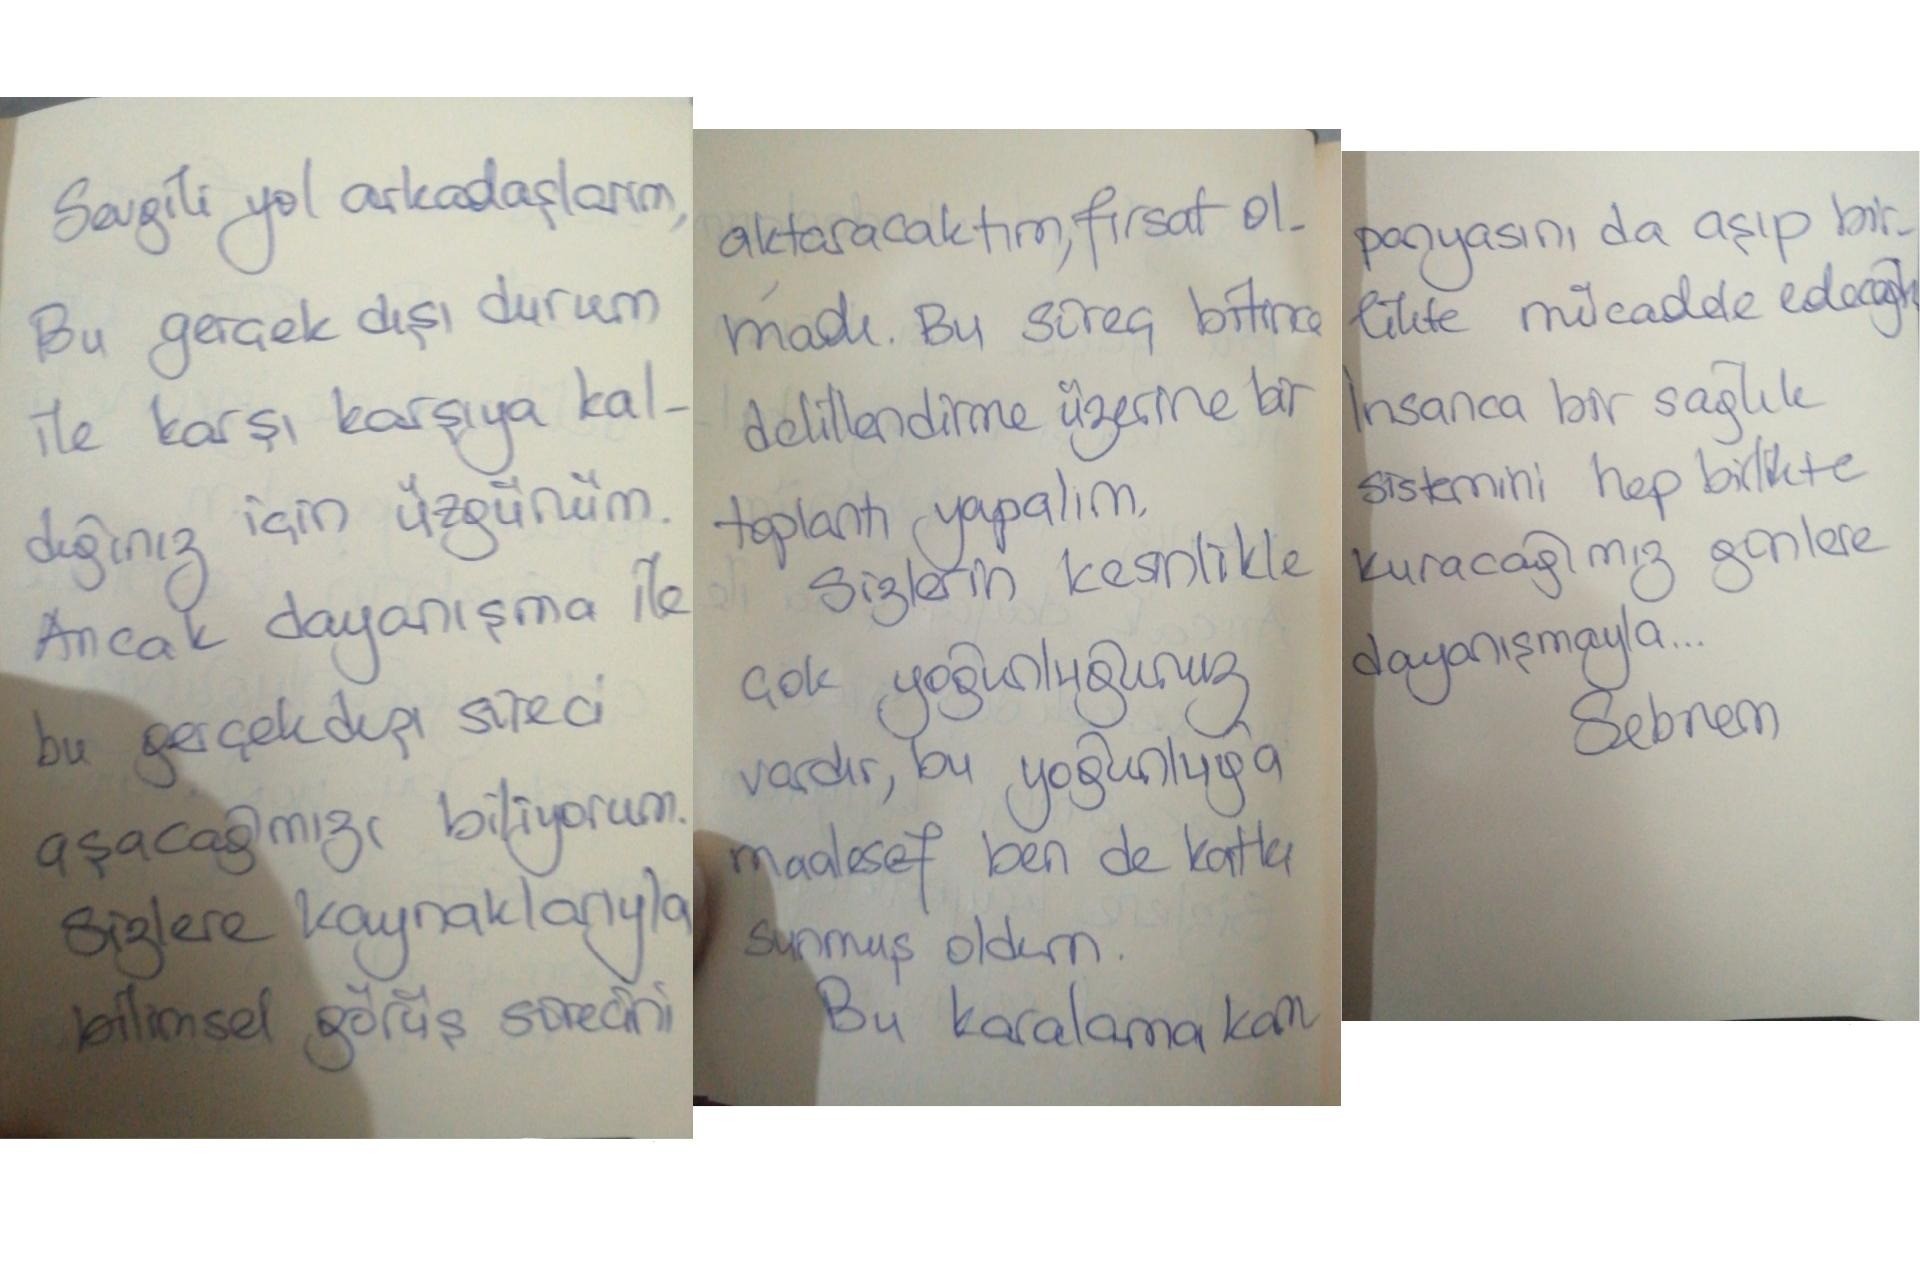 Sevgili yol arkadaşlarım,
Bu gerçek dışı durum
ile karşı karşıya kal-
dığınız için üzgünüm.
Ancak dayanışma ile
bu gerçekdışı süreci
aşacağımızı biliyorum.
Sizlere kaynaklarıyla
bilimsel görüş sürecini
aktaracaktım, fırsat ol-
madı. Bu süreç bitince
delillendirme üzerine bir
toplantı yapalım.
Sizlerin kesinlikle
çok yoğunluğunuz
vardır, bu yoğunluğa
maalesef ben de katkı
sunmuş oldum.
Bu karalama kam
panyasını da aşıp bir-
likte mücadele edeceğiz
İnsanca bir sağlık
sistemini hep birlikte
kuracağımız günlere
dayanışmayla...
Şebnem